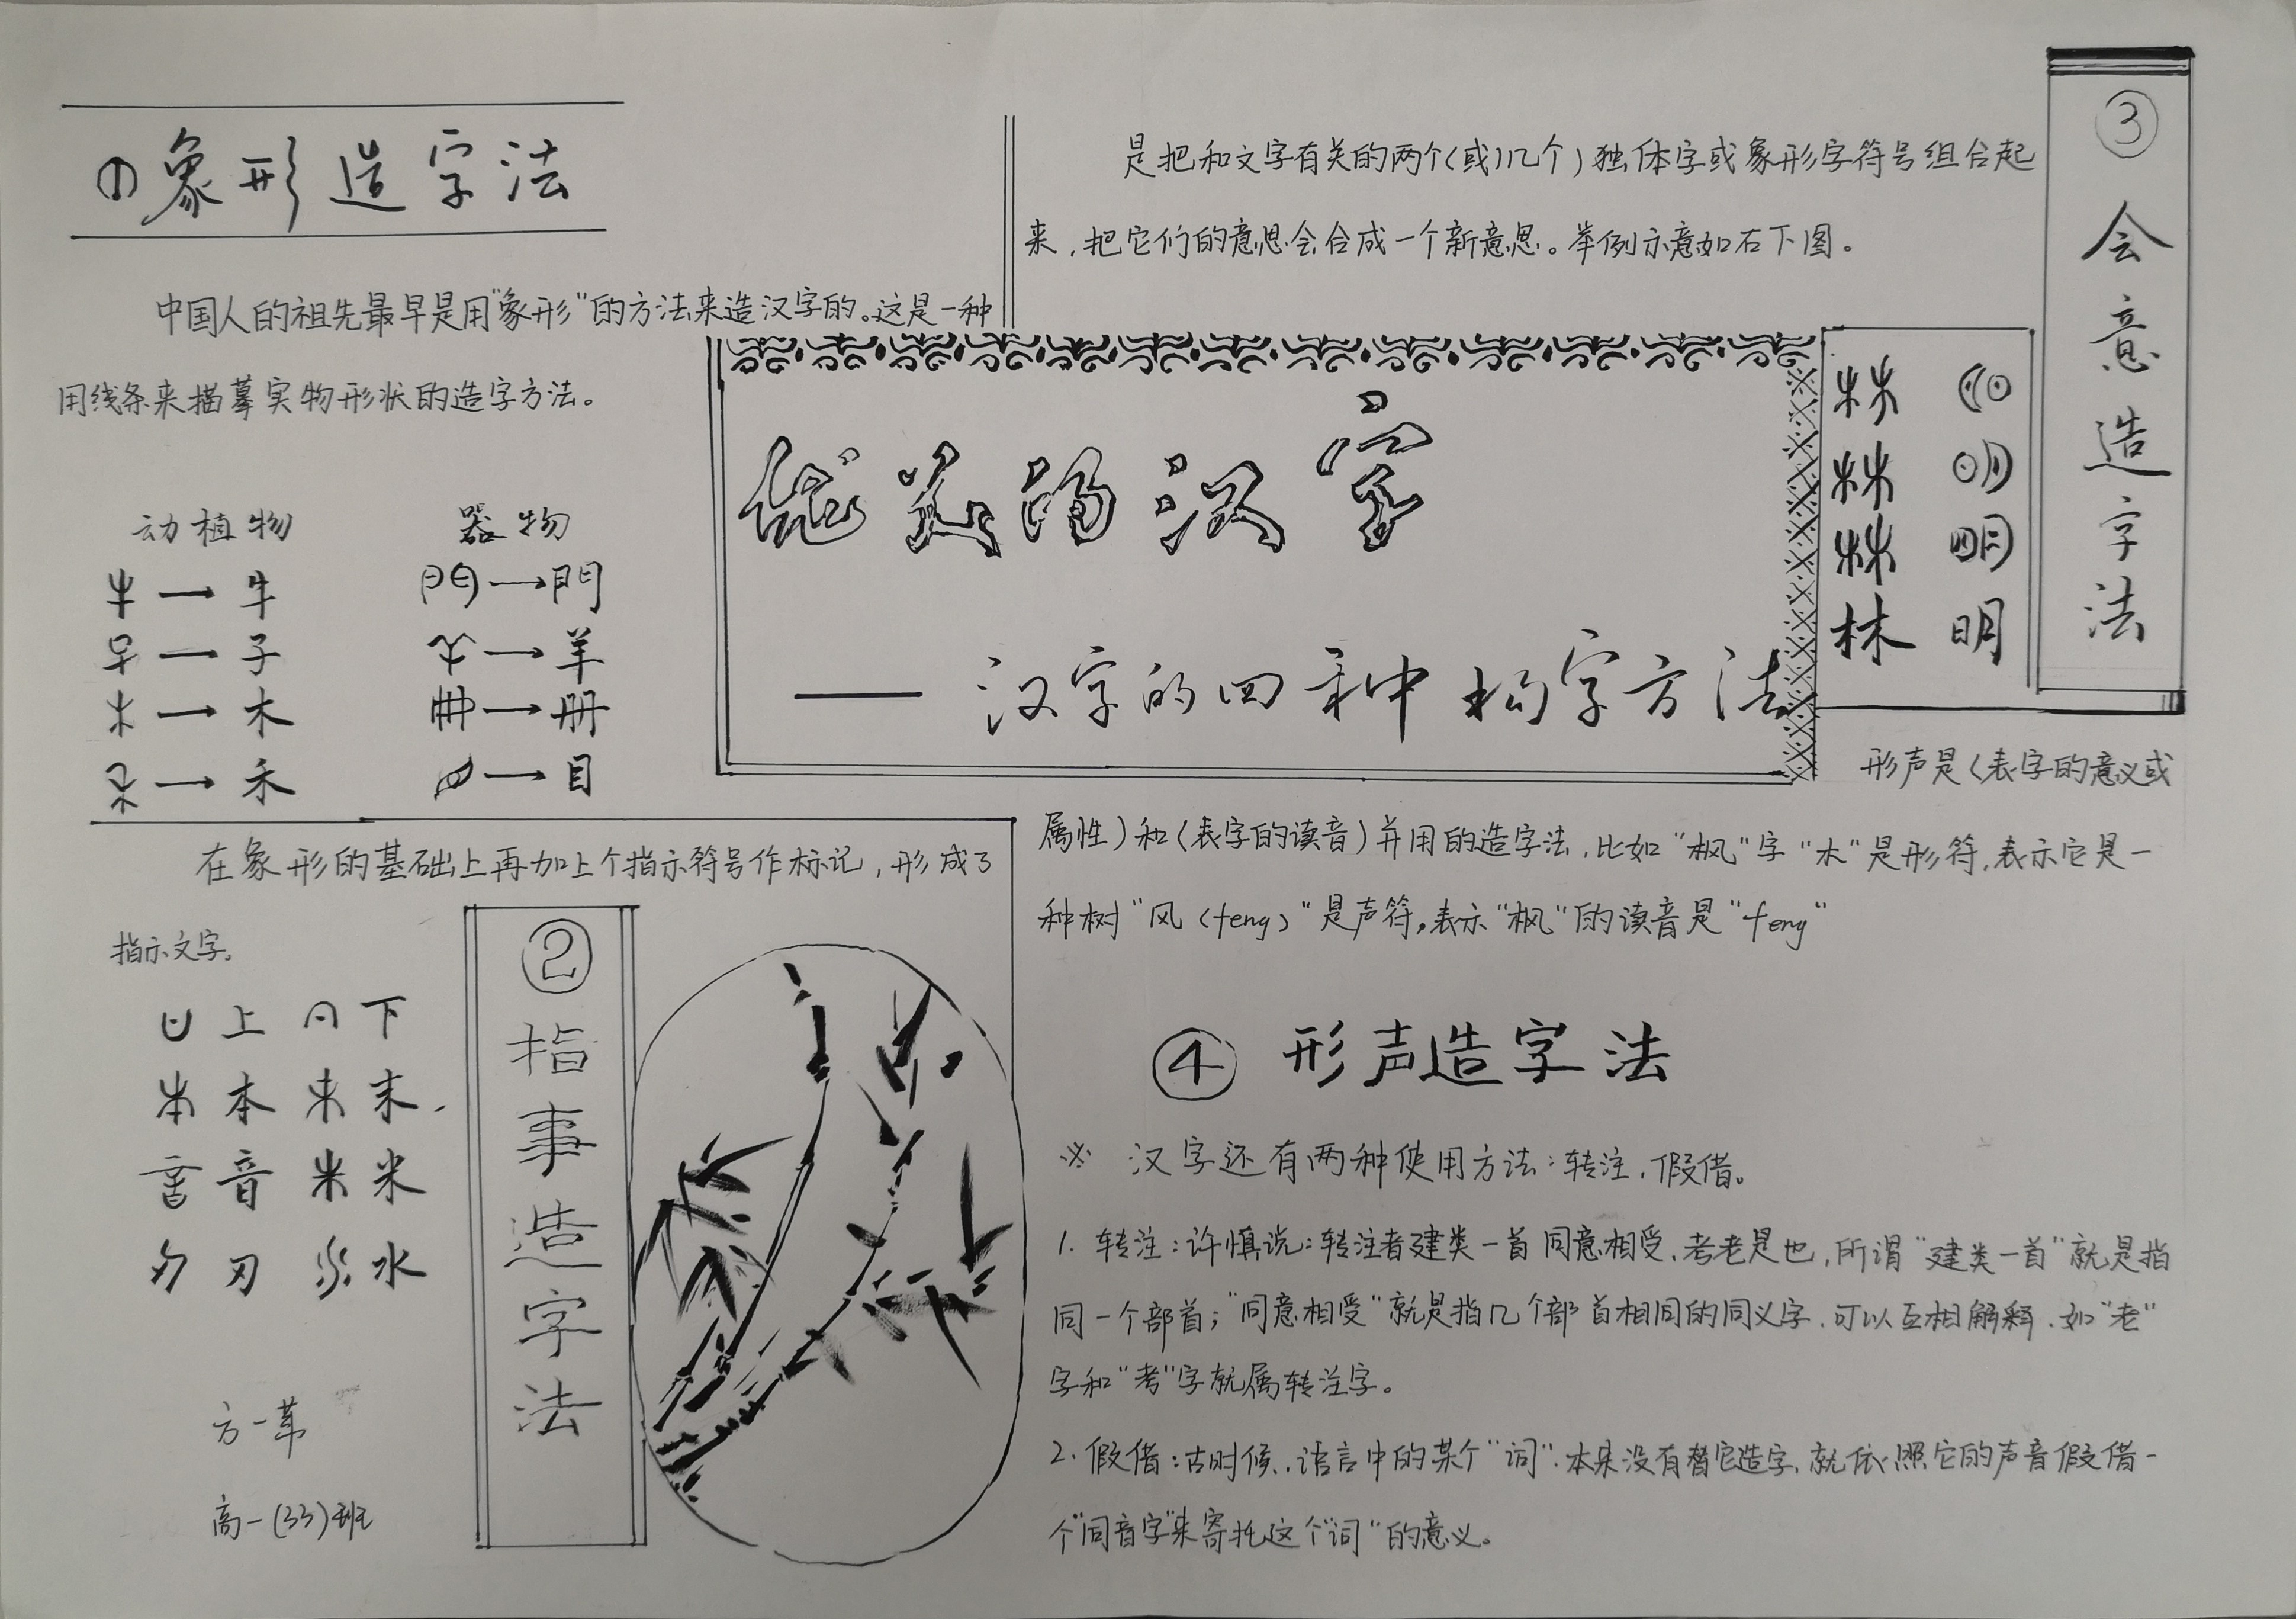 ①象形造字法
中国人的祖先最早是用"象形"的方法来造汉字的。这是一种
用线条来描摹实物形状的造字方法。
动植物 器物
→牛 →門
→子 →羊
→木 →册
→禾 →目
优美的汉字
——汉字的四种构字方法
在象形的基础上再加上个指示符号作标记,形成了
指示文字。
②指事造字法
上 下
本 末
音 米
刃 水
方一苇
高一(33)班
③会意造字法
是把和文字有关的两个(或)几个)独体字或象形字符号组合起
来,把它们的意思会合成一个新意思。举例示意如右下图。
林 明
形声是(表字的意义或
属性)和(表字的读音)并用的造字法,比如"枫"字"木"是形符,表示它是一
种树"风(feng)"是声符,表示"枫"的读音是"feng"
④ 形声造字法
※ 汉字还有两种使用方法:转注,假借。
1. 转注:许慎说:转注者建类一首同意相受,考老是也,所谓"建类一首"就是指
同一个部首;"同意相受"就是指几个部首相同的同义字,可以互相解释,如"老"
字和"考"字就属转注字。
2. 假借:古时候,语言中的某个"词",本来没有替它造字,就依照它的声音假借一
个"同音字"来寄托这个"词"的意义。